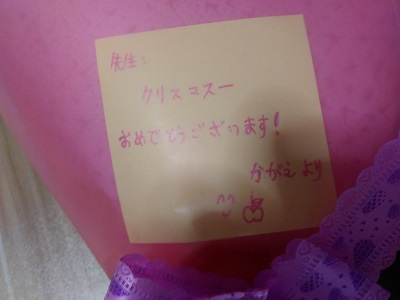 先生:
クリスマスー
おめでとうございます!
かがえより